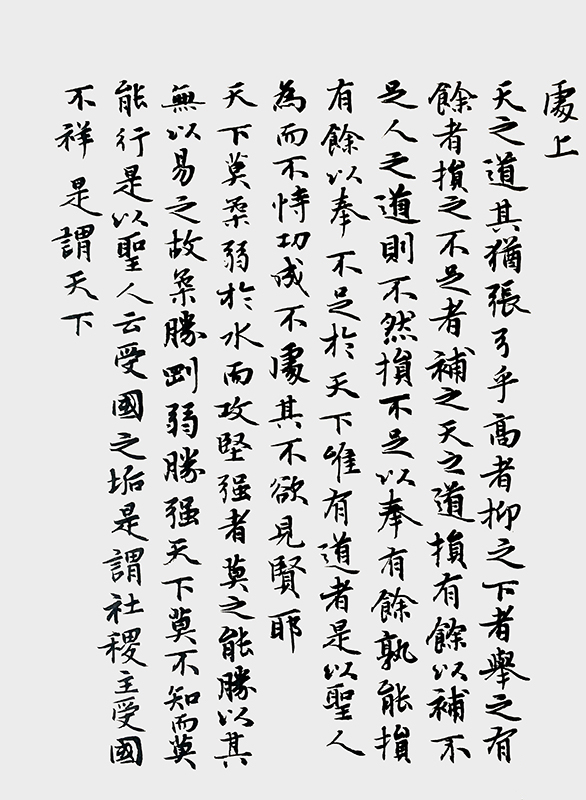 處上
天之道其猶張弓乎高者抑之下者舉之有
餘者損之不足者補之天之道損有餘以補不
足人之道則不然損不足以奉有餘孰能損
有餘以奉不足於天下唯有道者是以聖人
為而不恃功成不處其不欲見賢耶
天下莫柔弱於水而攻堅强者莫之能勝以其
無以易之故柔勝剛弱勝强天下莫不知而莫
能行是以聖人云受國之垢是謂社稷主受國
不祥是謂天下